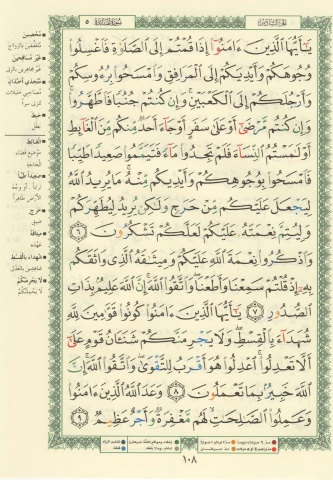 الجزء السادس
سورة المائدة ٥
يَٰٓأَيُّهَا ٱلَّذِينَ ءَامَنُوٓا۟ إِذَا قُمْتُمْ إِلَى ٱلصَّلَوٰةِ فَٱغْسِلُوا۟
وُجُوهَكُمْ وَأَيْدِيَكُمْ إِلَى ٱلْمَرَافِقِ وَٱمْسَحُوا۟ بِرُءُوسِكُمْ
وَأَرْجُلَكُمْ إِلَى ٱلْكَعْبَيْنِ وَإِن كُنتُمْ جُنُبًا فَٱطَّهَّرُوا۟
وَإِن كُنتُم مَّرْضَىٰٓ أَوْ عَلَىٰ سَفَرٍ أَوْ جَآءَ أَحَدٌ مِّنكُم مِّنَ ٱلْغَآئِطِ
أَوْ لَٰمَسْتُمُ ٱلنِّسَآءَ فَلَمْ تَجِدُوا۟ مَآءً فَتَيَمَّمُوا۟ صَعِيدًا طَيِّبًا
فَٱمْسَحُوا۟ بِوُجُوهِكُمْ وَأَيْدِيكُم مِّنْهُ مَا يُرِيدُ ٱللَّهُ
لِيَجْعَلَ عَلَيْكُم مِّنْ حَرَجٍ وَلَٰكِن يُرِيدُ لِيُطَهِّرَكُمْ
وَلِيُتِمَّ نِعْمَتَهُۥ عَلَيْكُمْ لَعَلَّكُمْ تَشْكُرُونَ ٦
وَٱذْكُرُوا۟ نِعْمَةَ ٱللَّهِ عَلَيْكُمْ وَمِيثَٰقَهُ ٱلَّذِى وَاثَقَكُم
بِهِۦٓ إِذْ قُلْتُمْ سَمِعْنَا وَأَطَعْنَا وَٱتَّقُوا۟ ٱللَّهَ إِنَّ ٱللَّهَ عَلِيمٌۢ بِذَاتِ
ٱلصُّدُورِ ٧ يَٰٓأَيُّهَا ٱلَّذِينَ ءَامَنُوا۟ كُونُوا۟ قَوَّٰمِينَ لِلَّهِ
شُهَدَآءَ بِٱلْقِسْطِ وَلَا يَجْرِمَنَّكُمْ شَنَـَٔانُ قَوْمٍ عَلَىٰٓ
أَلَّا تَعْدِلُوا۟ ٱعْدِلُوا۟ هُوَ أَقْرَبُ لِلتَّقْوَىٰ وَٱتَّقُوا۟ ٱللَّهَ إِنَّ
ٱللَّهَ خَبِيرٌۢ بِمَا تَعْمَلُونَ ٨ وَعَدَ ٱللَّهُ ٱلَّذِينَ ءَامَنُوا۟
وَعَمِلُوا۟ ٱلصَّٰلِحَٰتِ لَهُم مَّغْفِرَةٌ وَأَجْرٌ عَظِيمٌ ٩
محصنين
متعففين بالزواج
غير مسافحين
متخذي أخدان
حبط
بطل
الغائط
صعيدا طيبا
حرج
ضيق
ميثاقه
عهده
شهداء بالقسط
شاهدين بالعدل
لا يجرمنكم
لا يحملنكم
١٠٨